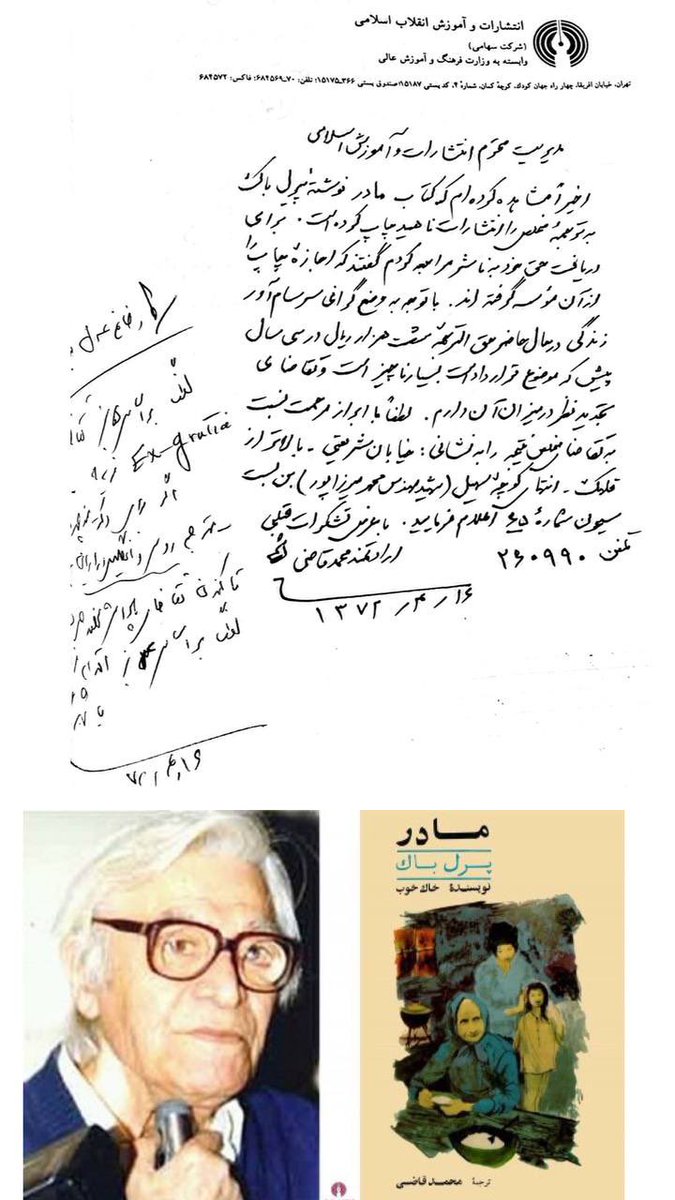 انتشارات و آموزش انقلاب اسلامی
(شرکت سهامی)
وابسته به وزارت فرهنگ و آموزش عالی
تهران، خیابان افریقا، چهار راه جهان کودک، کوچهٔ کمان، شمارهٔ ۴، کد پستی ۱۵۱۸۷؛ صندوق پستی ۳۶۶ـ۱۵۱۷۵؛ تلفن: ۷۰ـ۶۸۴۵۶۹؛ فاکس: ۶۸۴۵۷۲
مدیریت محترم انتشارات و آموزش اسلامی
اخیراً مشاهده کرده‌ام که کتاب مادر نوشتهٔ پیرل باک
به ترجمهٔ مخلص را انتشارات ناهید چاپ کرده است. برای
دریافت حق خود به ناشر مراجعه کردم گفتند که اجازهٔ چاپ را
از آن مؤسسه گرفته‌اند. با توجه به وضع گرانی سرسام آور
زندگی در حال حاضر حق الترجمهٔ شصت هزار ریال در سی سال
پیش که موضوع قرارداد است بسیار ناچیز است و تقاضای
تجدید نظر در میزان آن دارم. لطفاً با ابراز مرحمت نسبت
به تقاضای مخلص نتیجه را به نشانی: خیابان شریعتی - بالاتر از
قلهک - انتهای کوچهٔ سهیل (شهید مهندس محمد میرزاپور) بن بست
سیحون شمارهٔ ۶۵ اعلام فرمایید. با عرض تشکرات قلبی
تلفن ۲۶۰۹۹۰
ارادتمند محمد قاضی
۱۳۷۲/۴/۱۶
لطفاً بر اساس
Ex-gratia
اگر رأی
مترجم
تاکنون تقاضای
لطفاً بر اساس
۷۲/۴/۱۶
مادر
پرل باک
نویسندهٔ خاک خوب
ترجمهٔ محمد قاضی